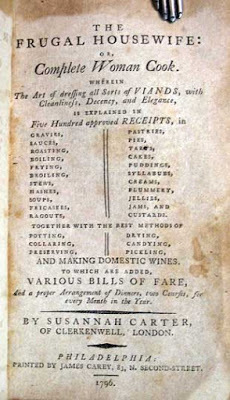 THE
FRUGAL HOUSEWIFE:
OR,
Complete Woman Cook.
WHEREIN
The Art of dreſſing all Sorts of VIANDS, with
Cleanlineſs, Decency, and Elegance,
IS EXPLAINED IN
Five Hundred approved RECEIPTS, in
GRAVIES, PASTRIES,
SAUCES, PIES,
ROASTING, TARTS,
BOILING, CAKES,
FRYING, PUDDINGS,
BROILING, SYLLABUBS,
STEWS, CREAMS,
HASHES, FLUMMERY,
SOUPS, JELLIES,
FRICASEES, JAMS, AND
RAGOUTS, CUSTARDS.
TOGETHER WITH THE BEST METHODS OF
POTTING, DRYING,
COLLARING, CANDYING,
PRESERVING, PICKLING,
AND MAKING DOMESTIC WINES.
TO WHICH ARE ADDED,
VARIOUS BILLS OF FARE,
And a proper Arrangement of Dinners, two Courſes, for
every Month in the Year.
BY SUSANNAH CARTER,
OF CLERKENWELL, LONDON.
PHILADELPHIA:
PRINTED BY JAMES CAREY, 83, N. SECOND-STREET.
1796.